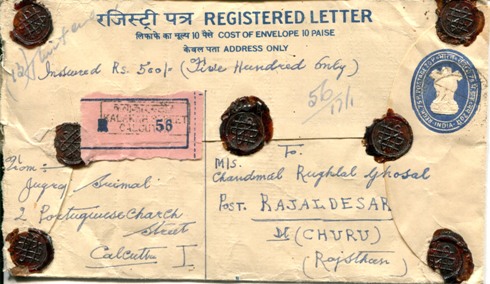 रजिस्ट्री पत्र REGISTERED LETTER
लिफाफे का मूल्य 10 पैसे COST OF ENVELOPE 10 PAISE
केवल पता ADDRESS ONLY
Insured Rs. 500/- (Five Hundred Only)
56
CALCUTTA 56
From :-
Suimal
2 Portuguese Church
Street
Calcutta I
To.
M/s.
Chandmal Rughlal Ghosal
POST. RAJALDESAR
(CHURU)
(Rajsthan)